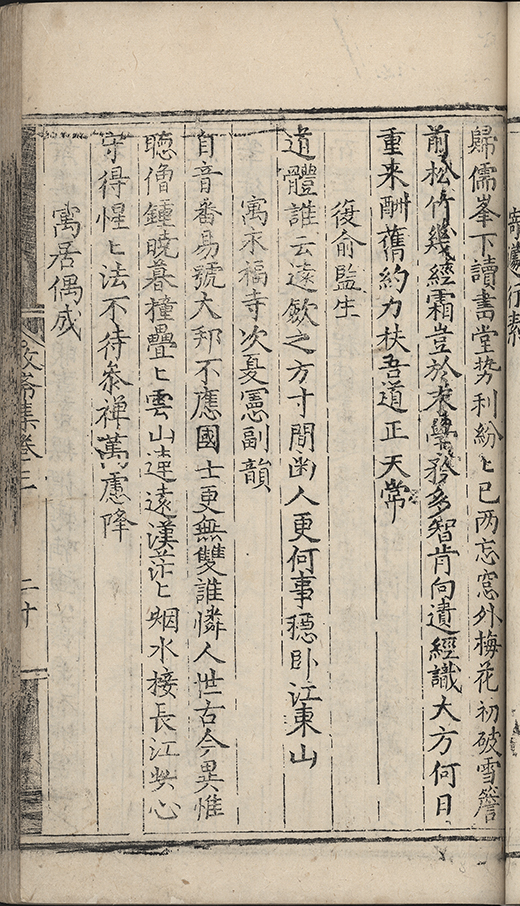 歸儒峯下讀書堂势利紛〻已两忘窓外梅花初破雪簷
前松竹幾經霜豈於末學矜多智肯向遺經識大方何日
重来酬舊約力扶吾道正天常
復俞監生
道體誰云遠歛之方寸間幽人更何事穏卧江東山
寓永福寺次夏憲副韻
自音番昜號大邦不應國士更無雙誰憐人世古今異惟
聴僧鍾晓暮撞疊〻雲山連遠漢茫〻烟水接長江此心
守得惺〻法不待叅禪萬慮降
寓居偶成
敬齋集卷三
二十